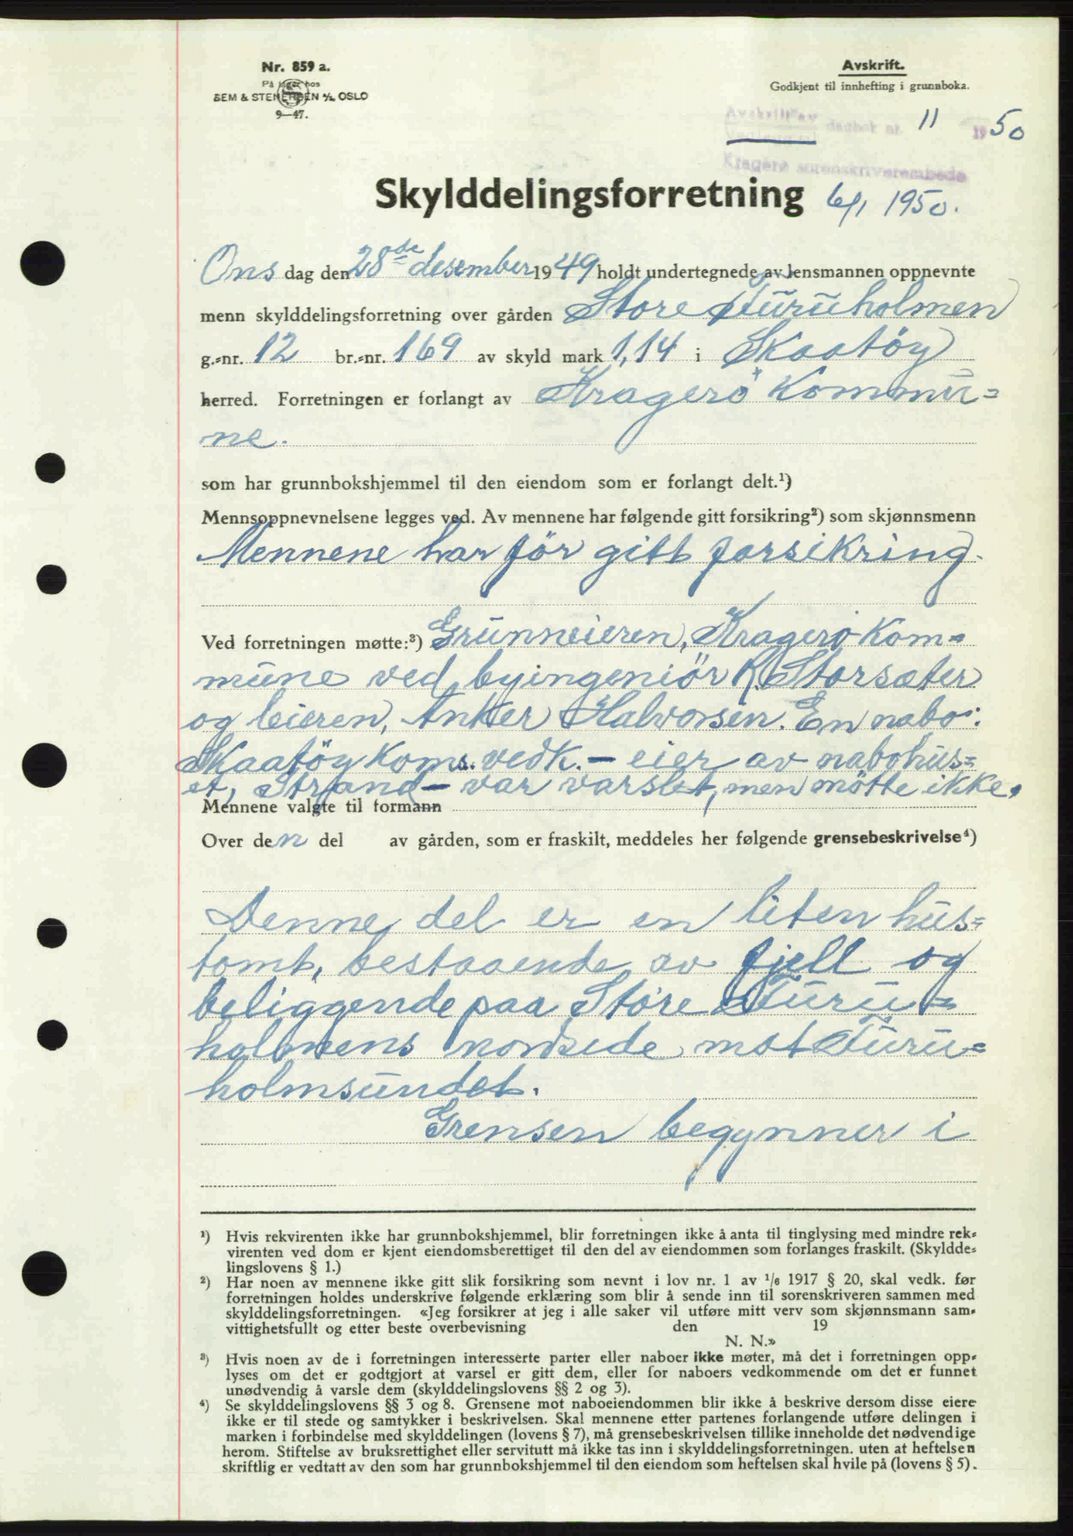 Nr. 859 a.
På lager hos
SEM & STENERSEN A/S, OSLO
9—47.
Avskrift.
Godkjent til innhefting i grunnboka.
Avskrift av dagbok nr. 11 1950
Kragerø sorenskriverembede
Skylddelingsforretning 6/1 1950.
Ons dag den 28de desember 1949 holdt undertegnede av lensmannen oppnevnte
menn skylddelingsforretning over gården Store Furuholmen
g.-nr. 12 br.-nr. 169 av skyld mark 1,14 i Skaatöy
herred. Forretningen er forlangt av Kragerö Kommu-
ne.
som har grunnbokshjemmel til den eiendom som er forlangt delt.¹)
Mennsoppnevnelsene legges ved. Av mennene har følgende gitt forsikring²) som skjønnsmenn
Mennene har för gitt forsikring.
Ved forretningen møtte:³) Grunneieren, Kragerö Kom-
mune ved byingeniör K. Storsæter
og leieren, Anker Halvorsen. En nabo:
Skaatöy Koms. vedk. – eier av nabohus-
et, Strand – var varslet, men mötte ikke.
Mennene valgte til formann
Over den del av gården, som er fraskilt, meddeles her følgende grensebeskrivelse⁴)
Denne del er en liten hus-
tomt, bestaaende av fjell og
beliggende paa Store Furu-
holmens nordside mot Furu-
holmsundet.
Grensen begynner i
¹) Hvis rekvirenten ikke har grunnbokshjemmel, blir forretningen ikke å anta til tinglysing med mindre rek-
virenten ved dom er kjent eiendomsberettiget til den del av eiendommen som forlanges fraskilt. (Skyldde-
lingslovens § 1.)
²) Har noen av mennene ikke gitt slik forsikring som nevnt i lov nr. 1 av 1/6 1917 § 20, skal vedk. før
forretningen holdes underskrive følgende erklæring som blir å sende inn til sorenskriveren sammen med
skylddelingsforretningen. «Jeg forsikrer at jeg i alle saker vil utføre mitt verv som skjønnsmann sam-
vittighetsfullt og etter beste overbevisning den 19
N. N.»
³) Hvis noen av de i forretningen interesserte parter eller naboer ikke møter, må det i forretningen opp-
lyses om det er godtgjort at varsel er gitt dem, eller for naboers vedkommende om det er funnet
unødvendig å varsle dem (skylddelingslovens §§ 2 og 3).
⁴) Se skylddelingslovens §§ 3 og 8. Grensene mot naboeiendommen blir ikke å beskrive dersom disse eiere
ikke er til stede og samtykker i beskrivelsen. Skal mennene etter partenes forlangende utføre delingen i
marken i forbindelse med skylddelingen (lovens § 7), må grensebeskrivelsen tillike inneholde det nødvendige
herom. Stiftelse av bruksrettighet eller servitutt må ikke tas inn i skylddelingsforretningen. uten at heftelsen
skriftlig er vedtatt av den som har grunnbokshjemmel til den eiendom som heftelsen skal hvile på (lovens § 5).